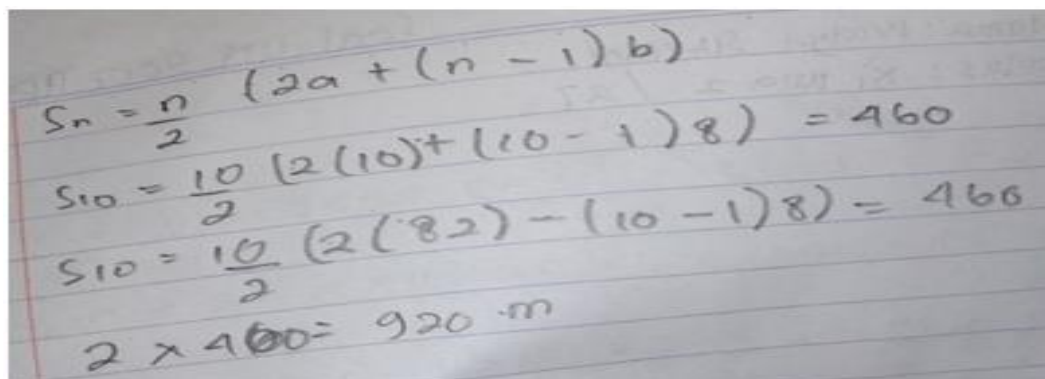 Sn = n/2 (2a + (n - 1) b)
S10 = 10/2 (2(10) + (10 - 1) 8) = 460
S10 = 10/2 (2(82) - (10 - 1) 8) = 460
2 x 460 = 920 m